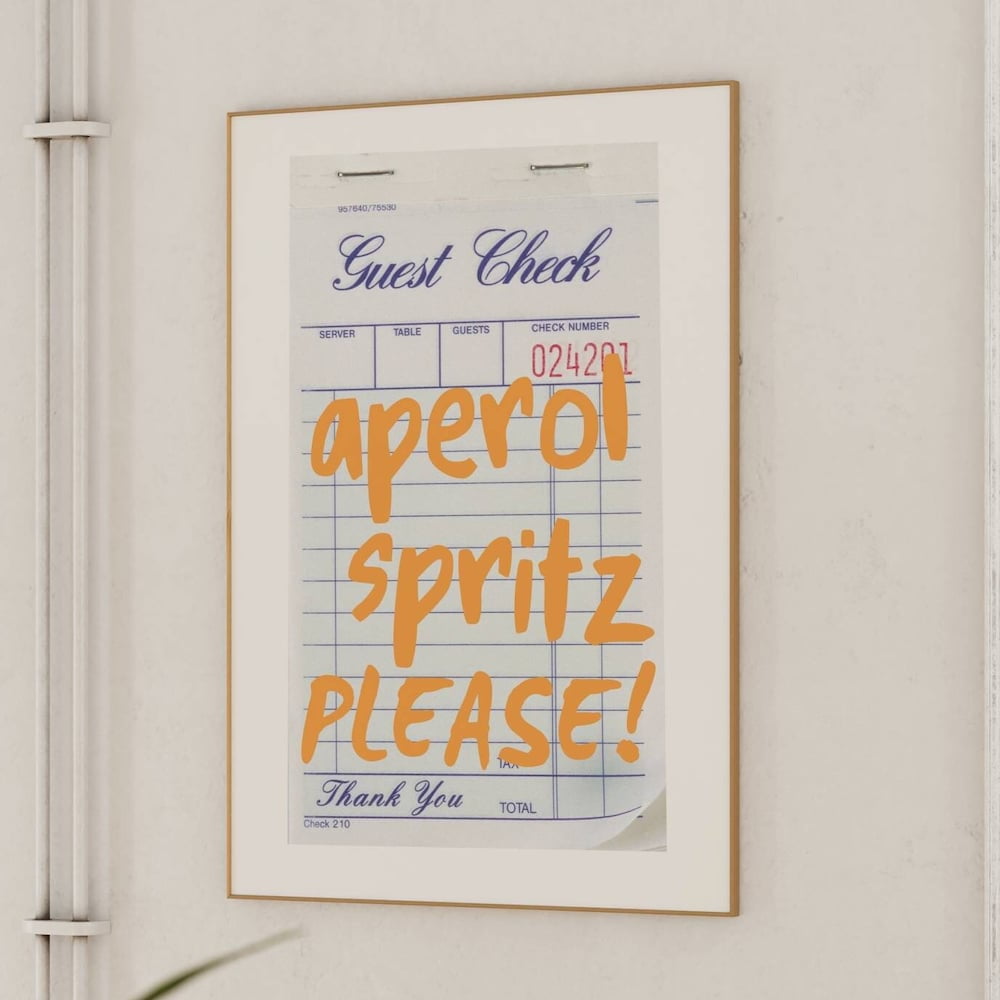 957640/75530
Guest Check
SERVER TABLE GUESTS CHECK NUMBER
024201
aperol
spritz
PLEASE!
TAX
Thank You TOTAL
Check 210